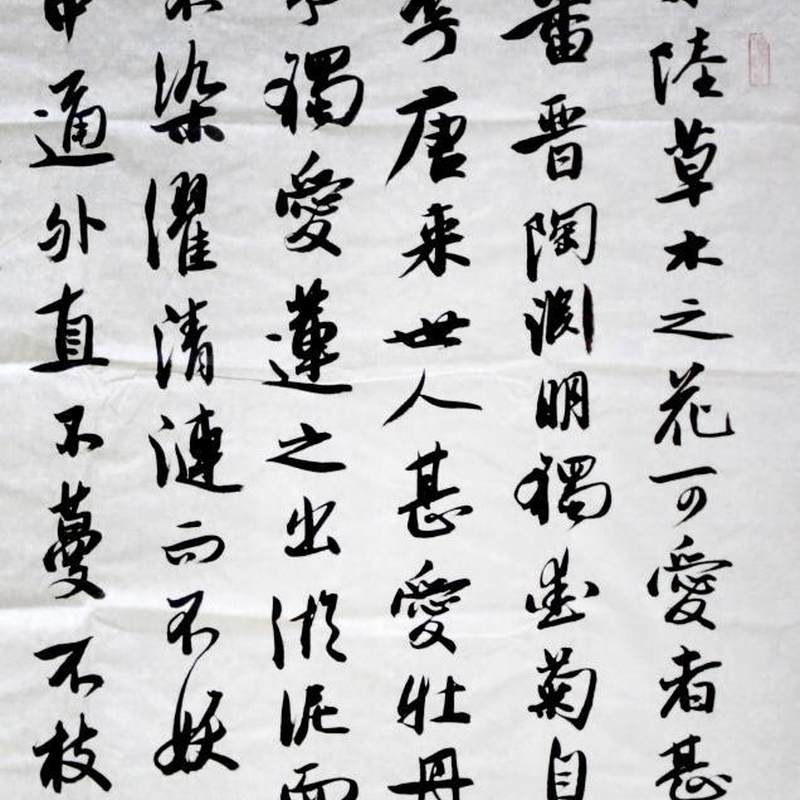 陸草木之花可愛者甚
蕃晉陶淵明獨愛菊自
李唐来世人甚愛牡丹
予獨愛蓮之出淤泥而
不染濯清漣而不妖
中通外直不蔓不枝